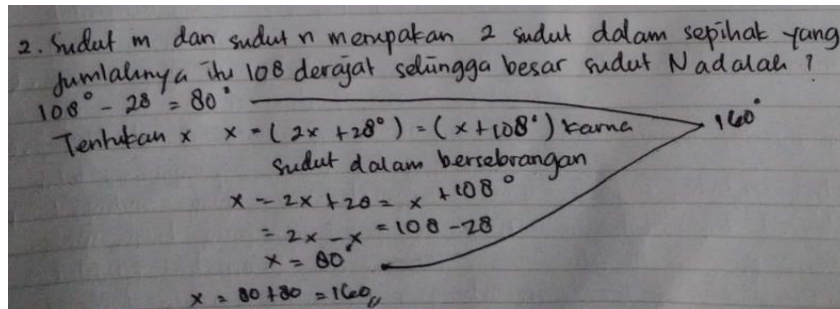 2. Sudut m dan sudut n merupakan 2 sudut dalam sepihak yang
jumlahnya itu 108 derajat sehingga besar sudut N adalah ?
108° - 28 = 80°
Tentukan x x = (2x + 28°) = (x + 108°) karna
160°
sudut dalam bersebrangan
x = 2x + 28 = x + 108°
= 2x - x = 108 - 28
x = 80°
x = 80 + 80 = 160,,